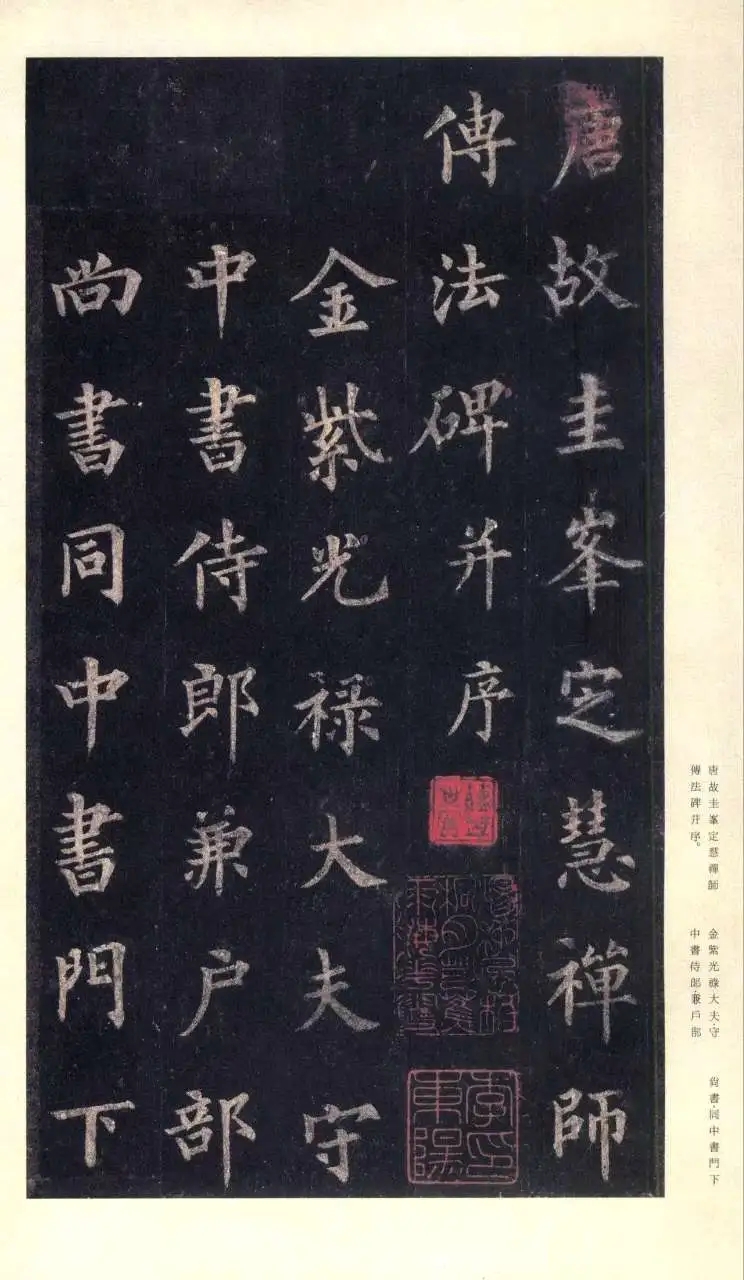 唐故圭峯定慧禪師
傳法碑并序
金紫光祿大夫守
中書侍郎兼戶部
尚書同中書門下
唐故圭峯定慧禪師
傳法碑并序。
金紫光祿大夫守
中書侍郎·兼戶部
尚書·同中書門下